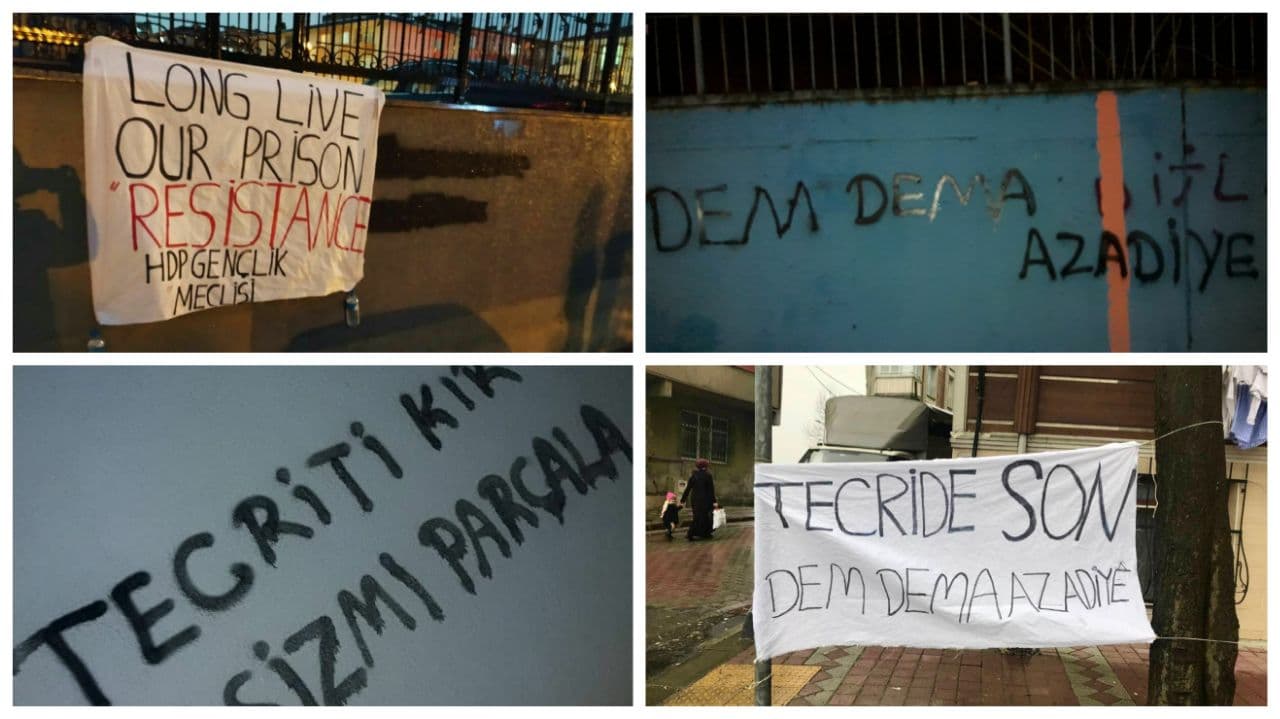 LONG LİVE
OUR PRİSON
"RESİSTANCE
HDP GENÇLİK
MECLİSİ
DEM DEMA
AZADİYE
TECRİTİ KIR
SİZMİ PARÇALA
TECRİDE SON
DEM DEMA AZADİYÊ